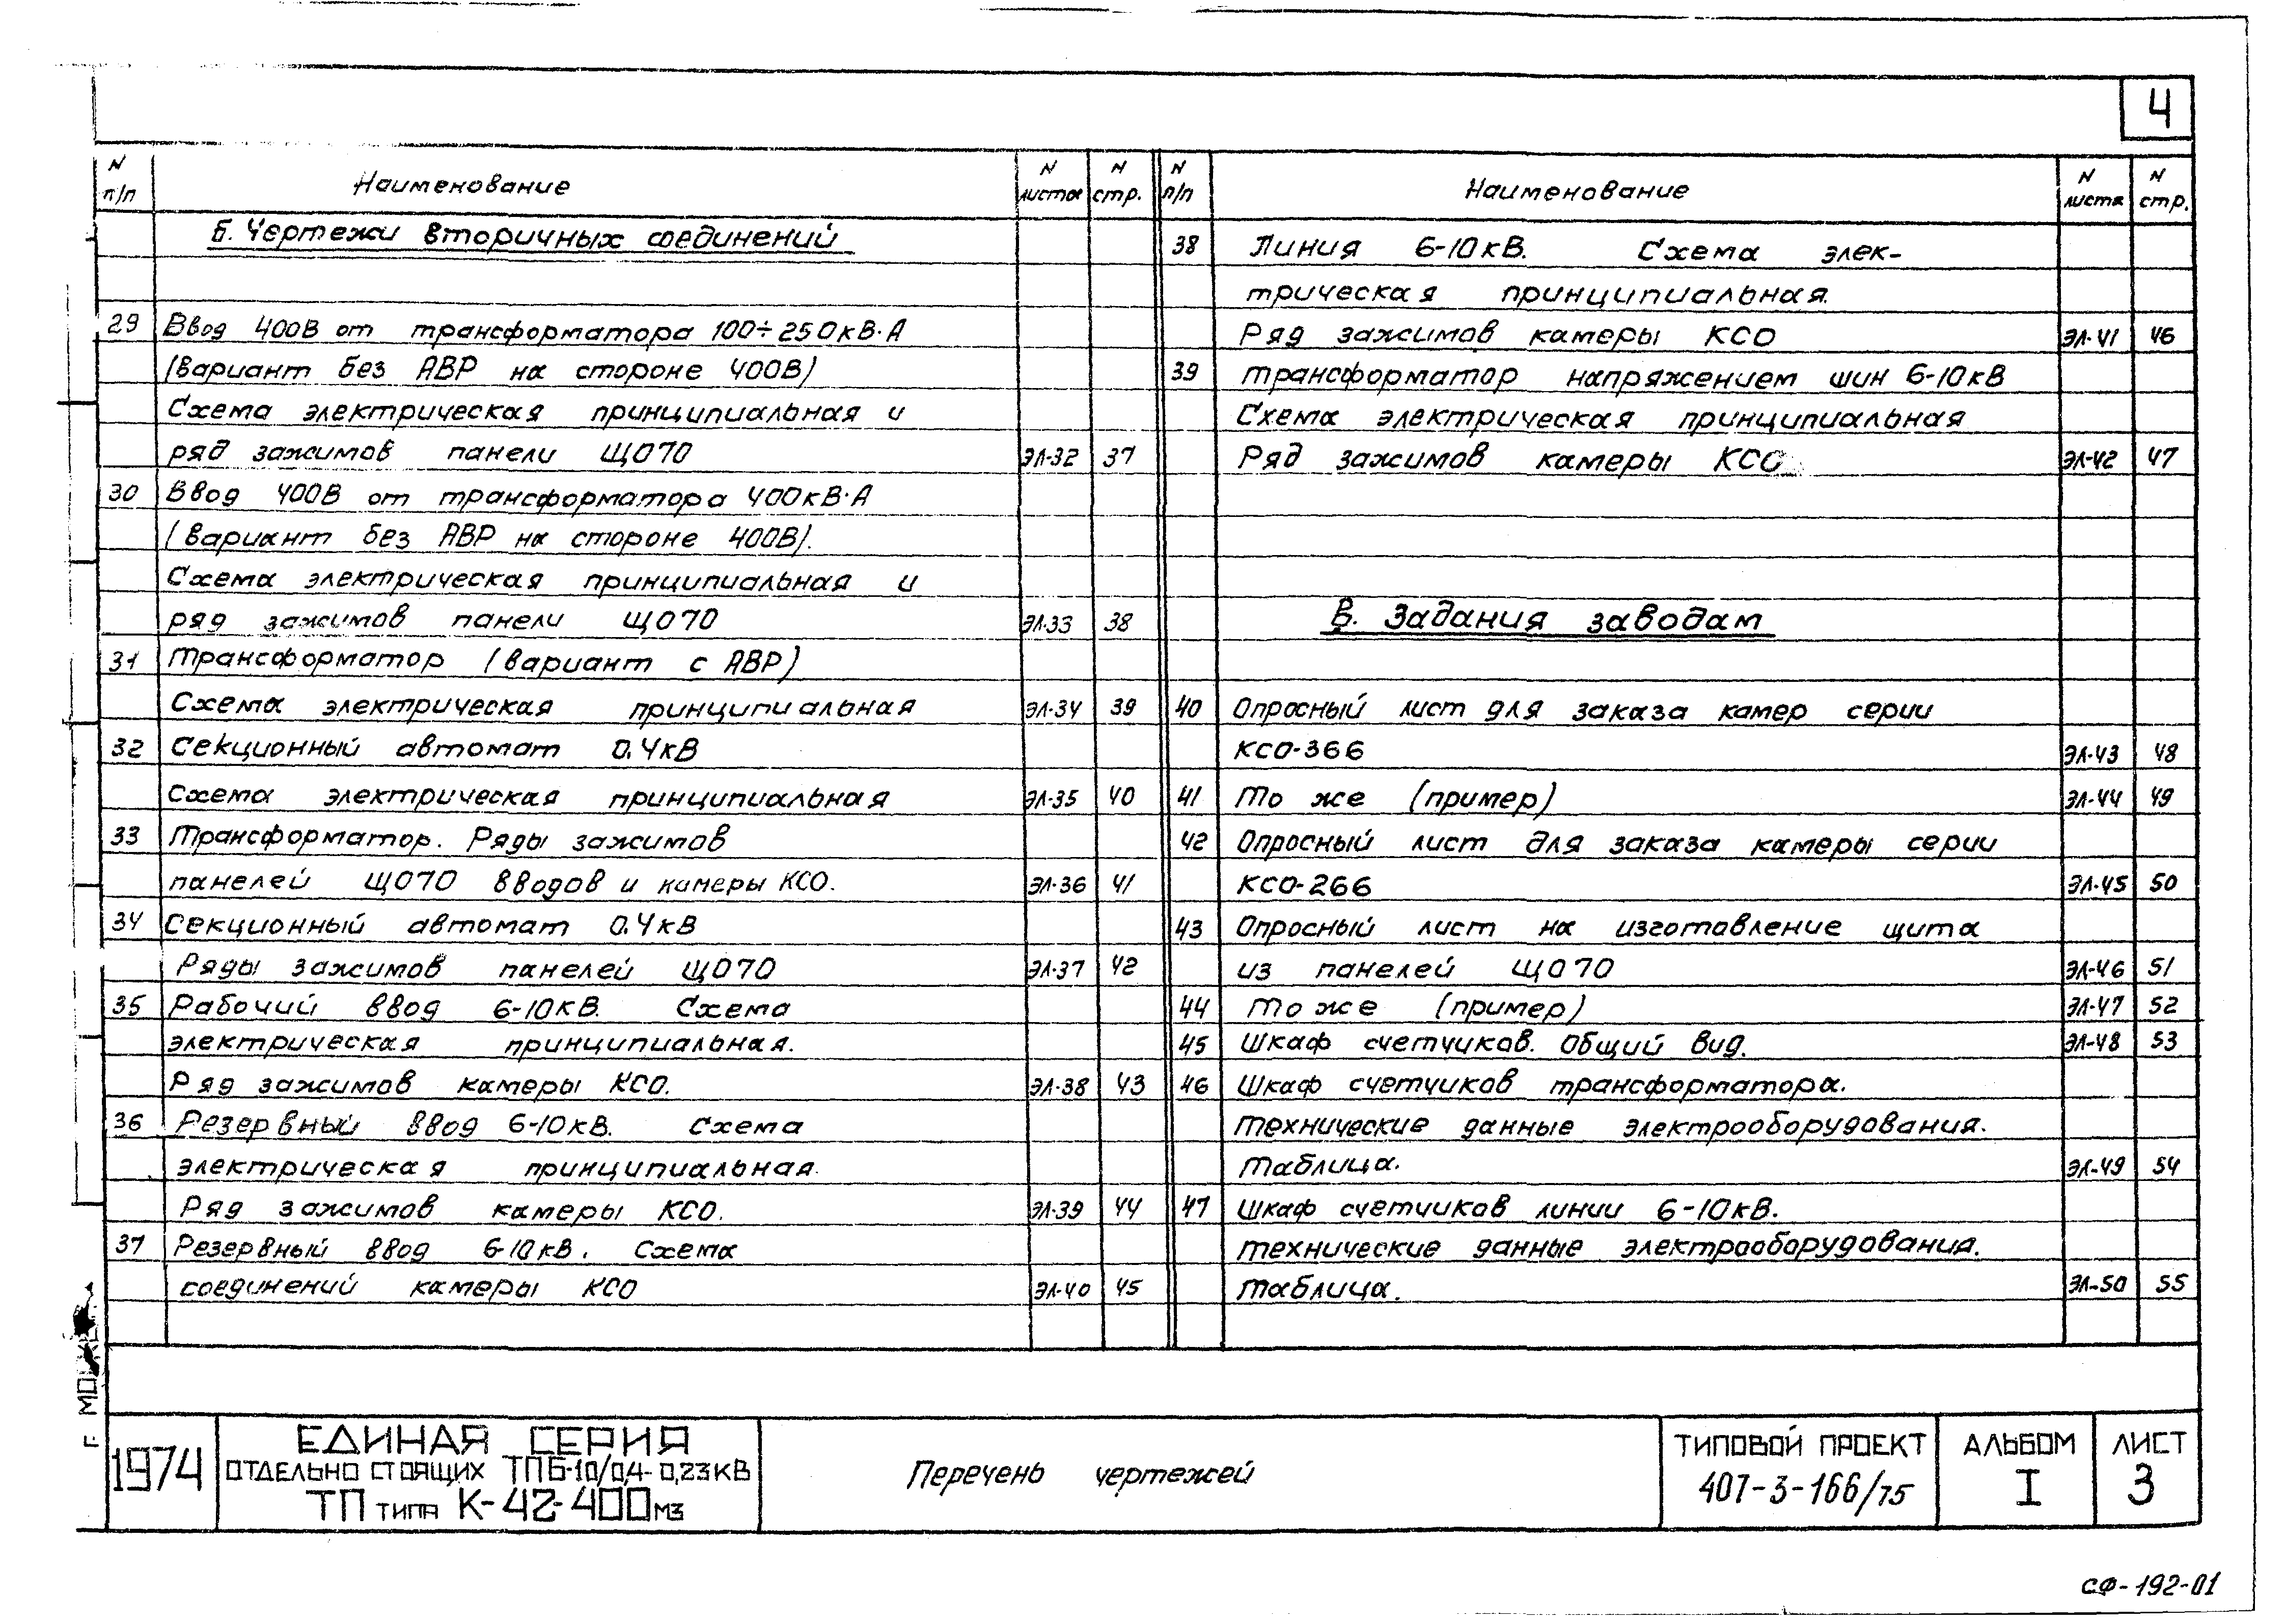 4
N п/п Наименование N листа N стр.
Б. Чертежи вторичных соединений
29 Ввод 400В от трансформатора 100÷250кВ·А
(вариант без АВР на стороне 400В)
Схема электрическая принципиальная и
ряд зажимов панели ЩО70 ЭЛ-32 37
30 Ввод 400В от трансформатора 400кВ·А
(вариант без АВР на стороне 400В).
Схема электрическая принципиальная и
ряд зажимов панели ЩО70 ЭЛ-33 38
31 Трансформатор (вариант с АВР)
Схема электрическая принципиальная ЭЛ-34 39
32 Секционный автомат 0.4кВ
Схема электрическая принципиальная ЭЛ-35 40
33 Трансформатор. Ряды зажимов
панелей ЩО70 вводов и камеры КСО. ЭЛ-36 41
34 Секционный автомат 0.4кВ
Ряды зажимов панелей ЩО70 ЭЛ-37 42
35 Рабочий ввод 6-10кВ. Схема
электрическая принципиальная.
Ряд зажимов камеры КСО. ЭЛ-38 43
36 Резервный ввод 6-10кВ. Схема
электрическая принципиальная.
Ряд зажимов камеры КСО. ЭЛ-39 44
37 Резервный ввод 6-10кВ. Схема
соединений камеры КСО ЭЛ-40 45
N п/п Наименование N листа N стр.
38 Линия 6-10кВ. Схема элек-
трическая принципиальная.
Ряд зажимов камеры КСО ЭЛ-41 46
39 Трансформатор напряжением шин 6-10кВ
Схема электрическая принципиальная
Ряд зажимов камеры КСО ЭЛ-42 47
В. Задания заводам
40 Опросный лист для заказа камер серии
КСО-366 ЭЛ-43 48
41 То же (пример) ЭЛ-44 49
42 Опросный лист для заказа камеры серии
КСО-266 ЭЛ-45 50
43 Опросный лист на изготовление щита
из панелей ЩО70 ЭЛ-46 51
44 То же (пример) ЭЛ-47 52
45 Шкаф счетчиков. Общий вид. ЭЛ-48 53
46 Шкаф счетчиков трансформатора.
Технические данные электрооборудования.
Таблица. ЭЛ-49 54
47 Шкаф счетчиков линии 6-10кВ.
Технические данные электрооборудования.
Таблица. ЭЛ-50 55
1974
ЕДИНАЯ СЕРИЯ
ОТДЕЛЬНО СТОЯЩИХ ТПБ-10/0,4-0,23КВ
ТП ТИПА К-42-400МЗ
Перечень чертежей
ТИПОВОЙ ПРОЕКТ
407-3-166/75
АЛЬБОМ
I
ЛИСТ
3
СФ-192-01